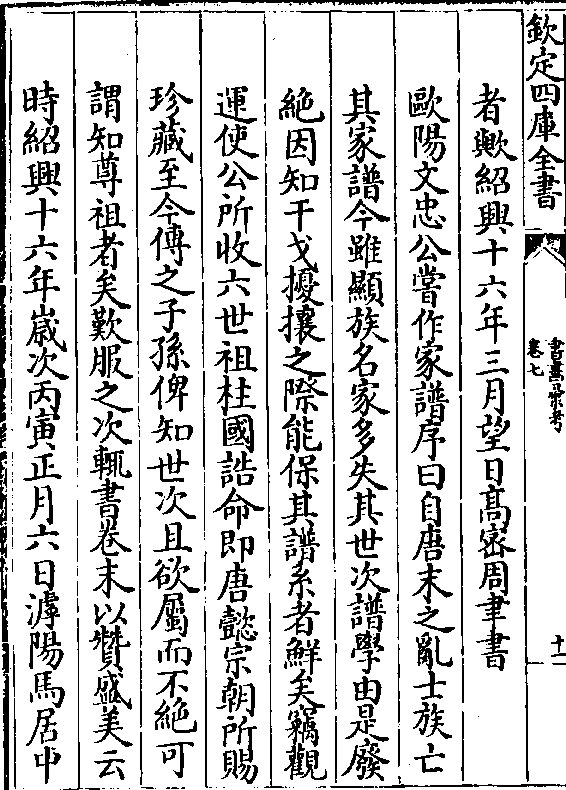 欽定四庫全書
書畫彚考
卷七
十一
者歟紹興十六年三月望日髙宻周聿書
歐陽文忠公嘗作家譜序曰自唐末之亂士族亡
其家譜今雖顯族名家多失其世次譜學由是廢
絶因知干戈擾攘之際能保其譜系者鮮矣竊觀
運使公所收六世祖柱國誥命即唐懿宗朝所賜
珍藏至今傳之子孫俾知世次且欲屬而不絶可
謂知尊祖者矣歎服之次輒書卷末以贊盛美云
時紹興十六年嵗次丙寅正月六日滹陽馬居中